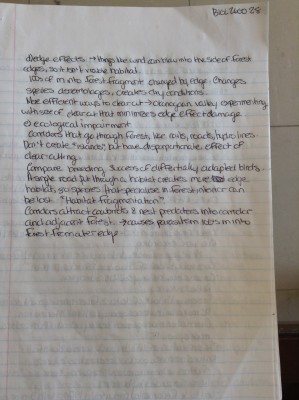 Biol 2400 28
d) edge effects → things like wind can blow into the side of forest
edges, so it isn't viable habitat.
100s of m into forest fragments changed by edge. Changes
species assemblages, creates dry conditions.
More efficient ways to clear cut → Okanagan valley experimenting
with size of clear cut that minimizes edge effect damage
e) ecological impairment
Corridors that go through forest, like cuts, roads, hydro lines.
Don't create "islands", but have disproportionate effect of
clear-cutting.
Compare breeding success of differentially adapted birds.
A simple road put through a habitat creates more edge
habitat, so species that specialize in forest interior can
be lost. "Habitat fragmentation"
Corridors attract cowbirds & nest predators into corridor
and adjacent forest. → causes parasitism 100s m into
forest from outer edge